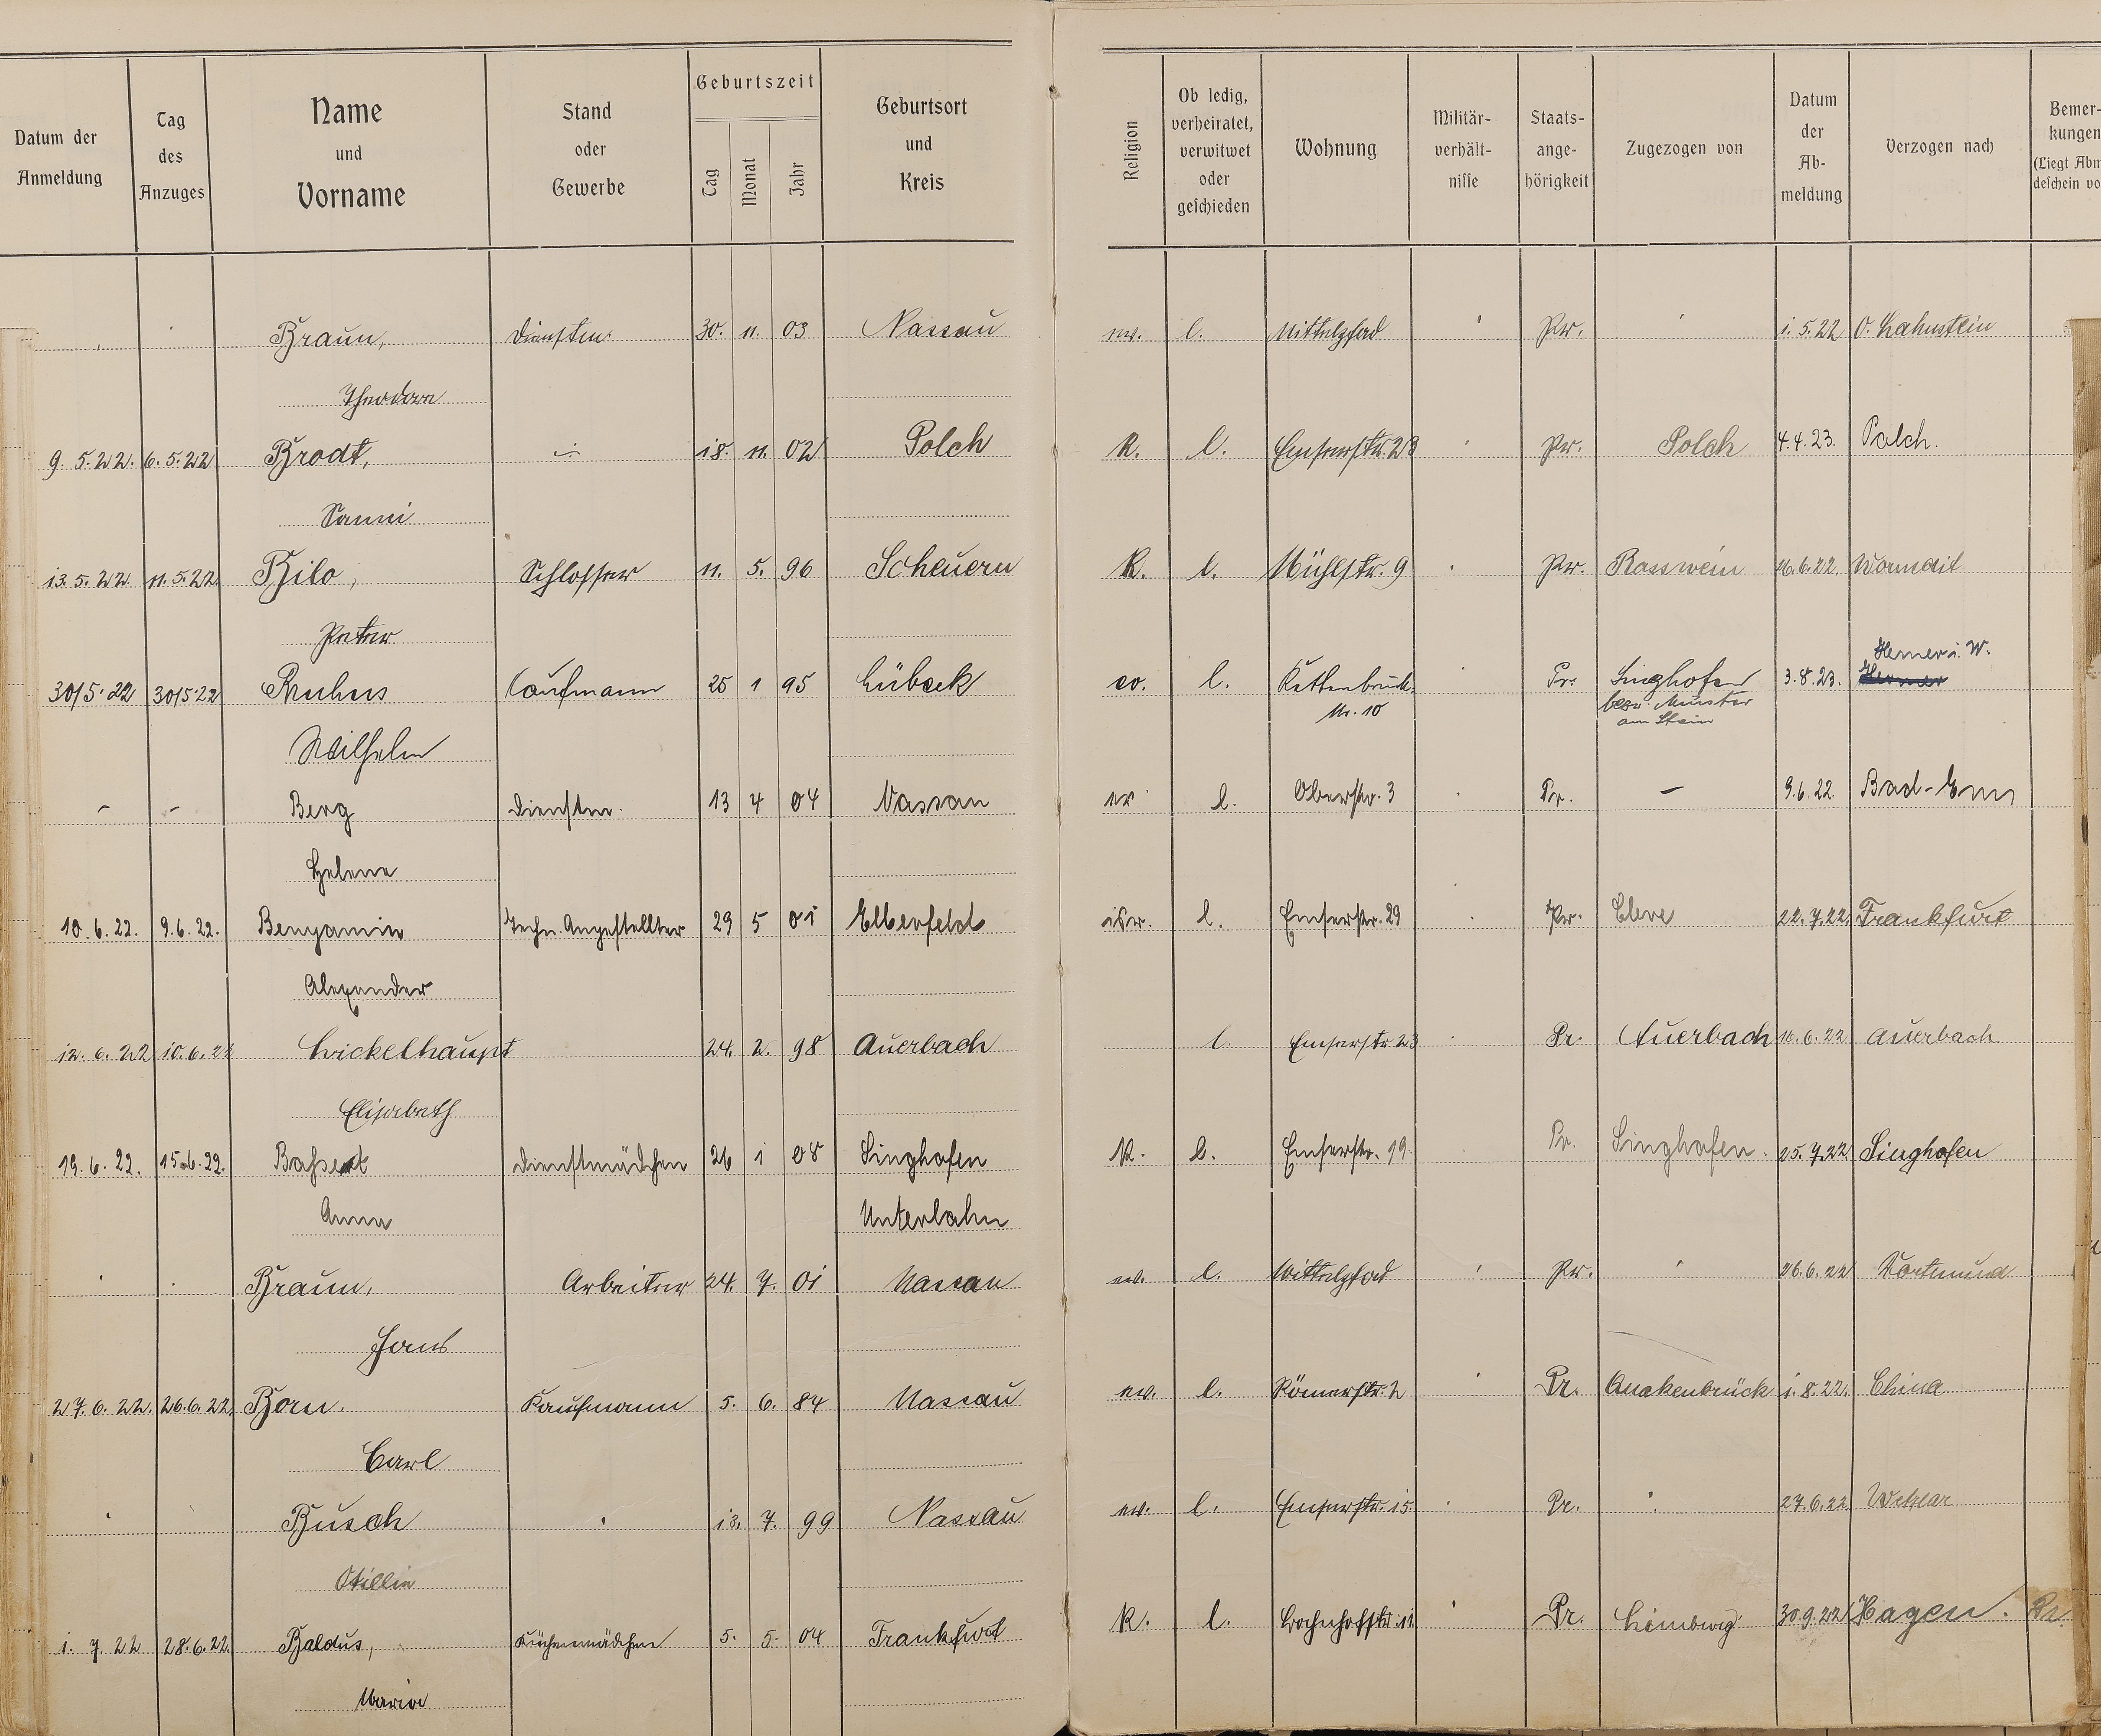 Datum der Anmeldung Tag des Anzuges Name und Vorname Stand oder Gewerbe Geburtszeit Tag Monat Jahr Geburtsort und Kreis Religion Ob ledig, verheiratet, verwitwet oder geschieden Wohnung Militär-verhält-nisse Staats-ange-hörigkeit Zugezogen von Datum der Ab-meldung Verzogen nach Bemer-kungen (Liegt Abm deschein vo
Braun, Dienstm. 30. 11. 03 Nassau ev. l. Mittelpfad Pr. 1.5.22 O. Lahnstein
Theodora
9.5.22. 6.5.22 Brodt, 18. 11. 02 Polch K. l. Emserstr. 23 Pr. Polch 4.4.23. Polch.
Fanni
13.5.22. 11.5.22 Bilo, Schlosser 11. 5. 96 Scheuern K. l. Mühlstr. 9 Pr. Rosswein 26.6.22. Wormdit
Peter
30/5.22 30/5 22 Kaufmann 25 1 95 Lübeck ev. l. Kettenbrück. Pr. Singhofen 3.8.23. Hemer i. W.
Nr. 10 bezw. Münster
am Stein
Wilhelm
– – Berg Dienstm. 13 4 04 Nassau ev l. Oberstr. 3 Pr. – 9.6.22. Bad-Ems
Helene
10.6.22. 9.6.22. Benyamin Techn. Angestellter 29 5 01 Elberfeld isr. l. Emserstr. 23 Pr. Cleve 22.7.22. Frankfurt
Alexander
12.6.22 10.6.22 Bickelhaupt 24. 2. 98 Auerbach l. Emserstr 23 Pr. Auerbach 16.6.22 Auerbach
Elisabeth
19.6.22. 15.6.22. Dienstmädchen 26 1 08 Singhofen K. l. Emserstr. 19. Pr. Singhofen. 25.7.22 Singhofen
Anna Unterlahn
Braun, Arbeiter 24. 7. 01 Nassau ev. l. Mittelpfad Pr. 26.6.22 Dortmund
Hans
27.6.22. 26.6.22. Born. Kaufmann 5. 6. 84 Nassau ev. l. Römerstr. 2 Pr. Quakenbrück 1.8.22. China
Carl
Busch 13. 7. 99 Nassau ev. l. Emserstr. 15 Pr. 27.6.22 Wetzlar
Otillie
1.7.22 28.6.22. Baldus, Küchenmädchen 5. 5. 04 Frankfurt K. l. Bahnhofstr. 11 Pr. Limburg 30.9.22 Hagen.
Maria